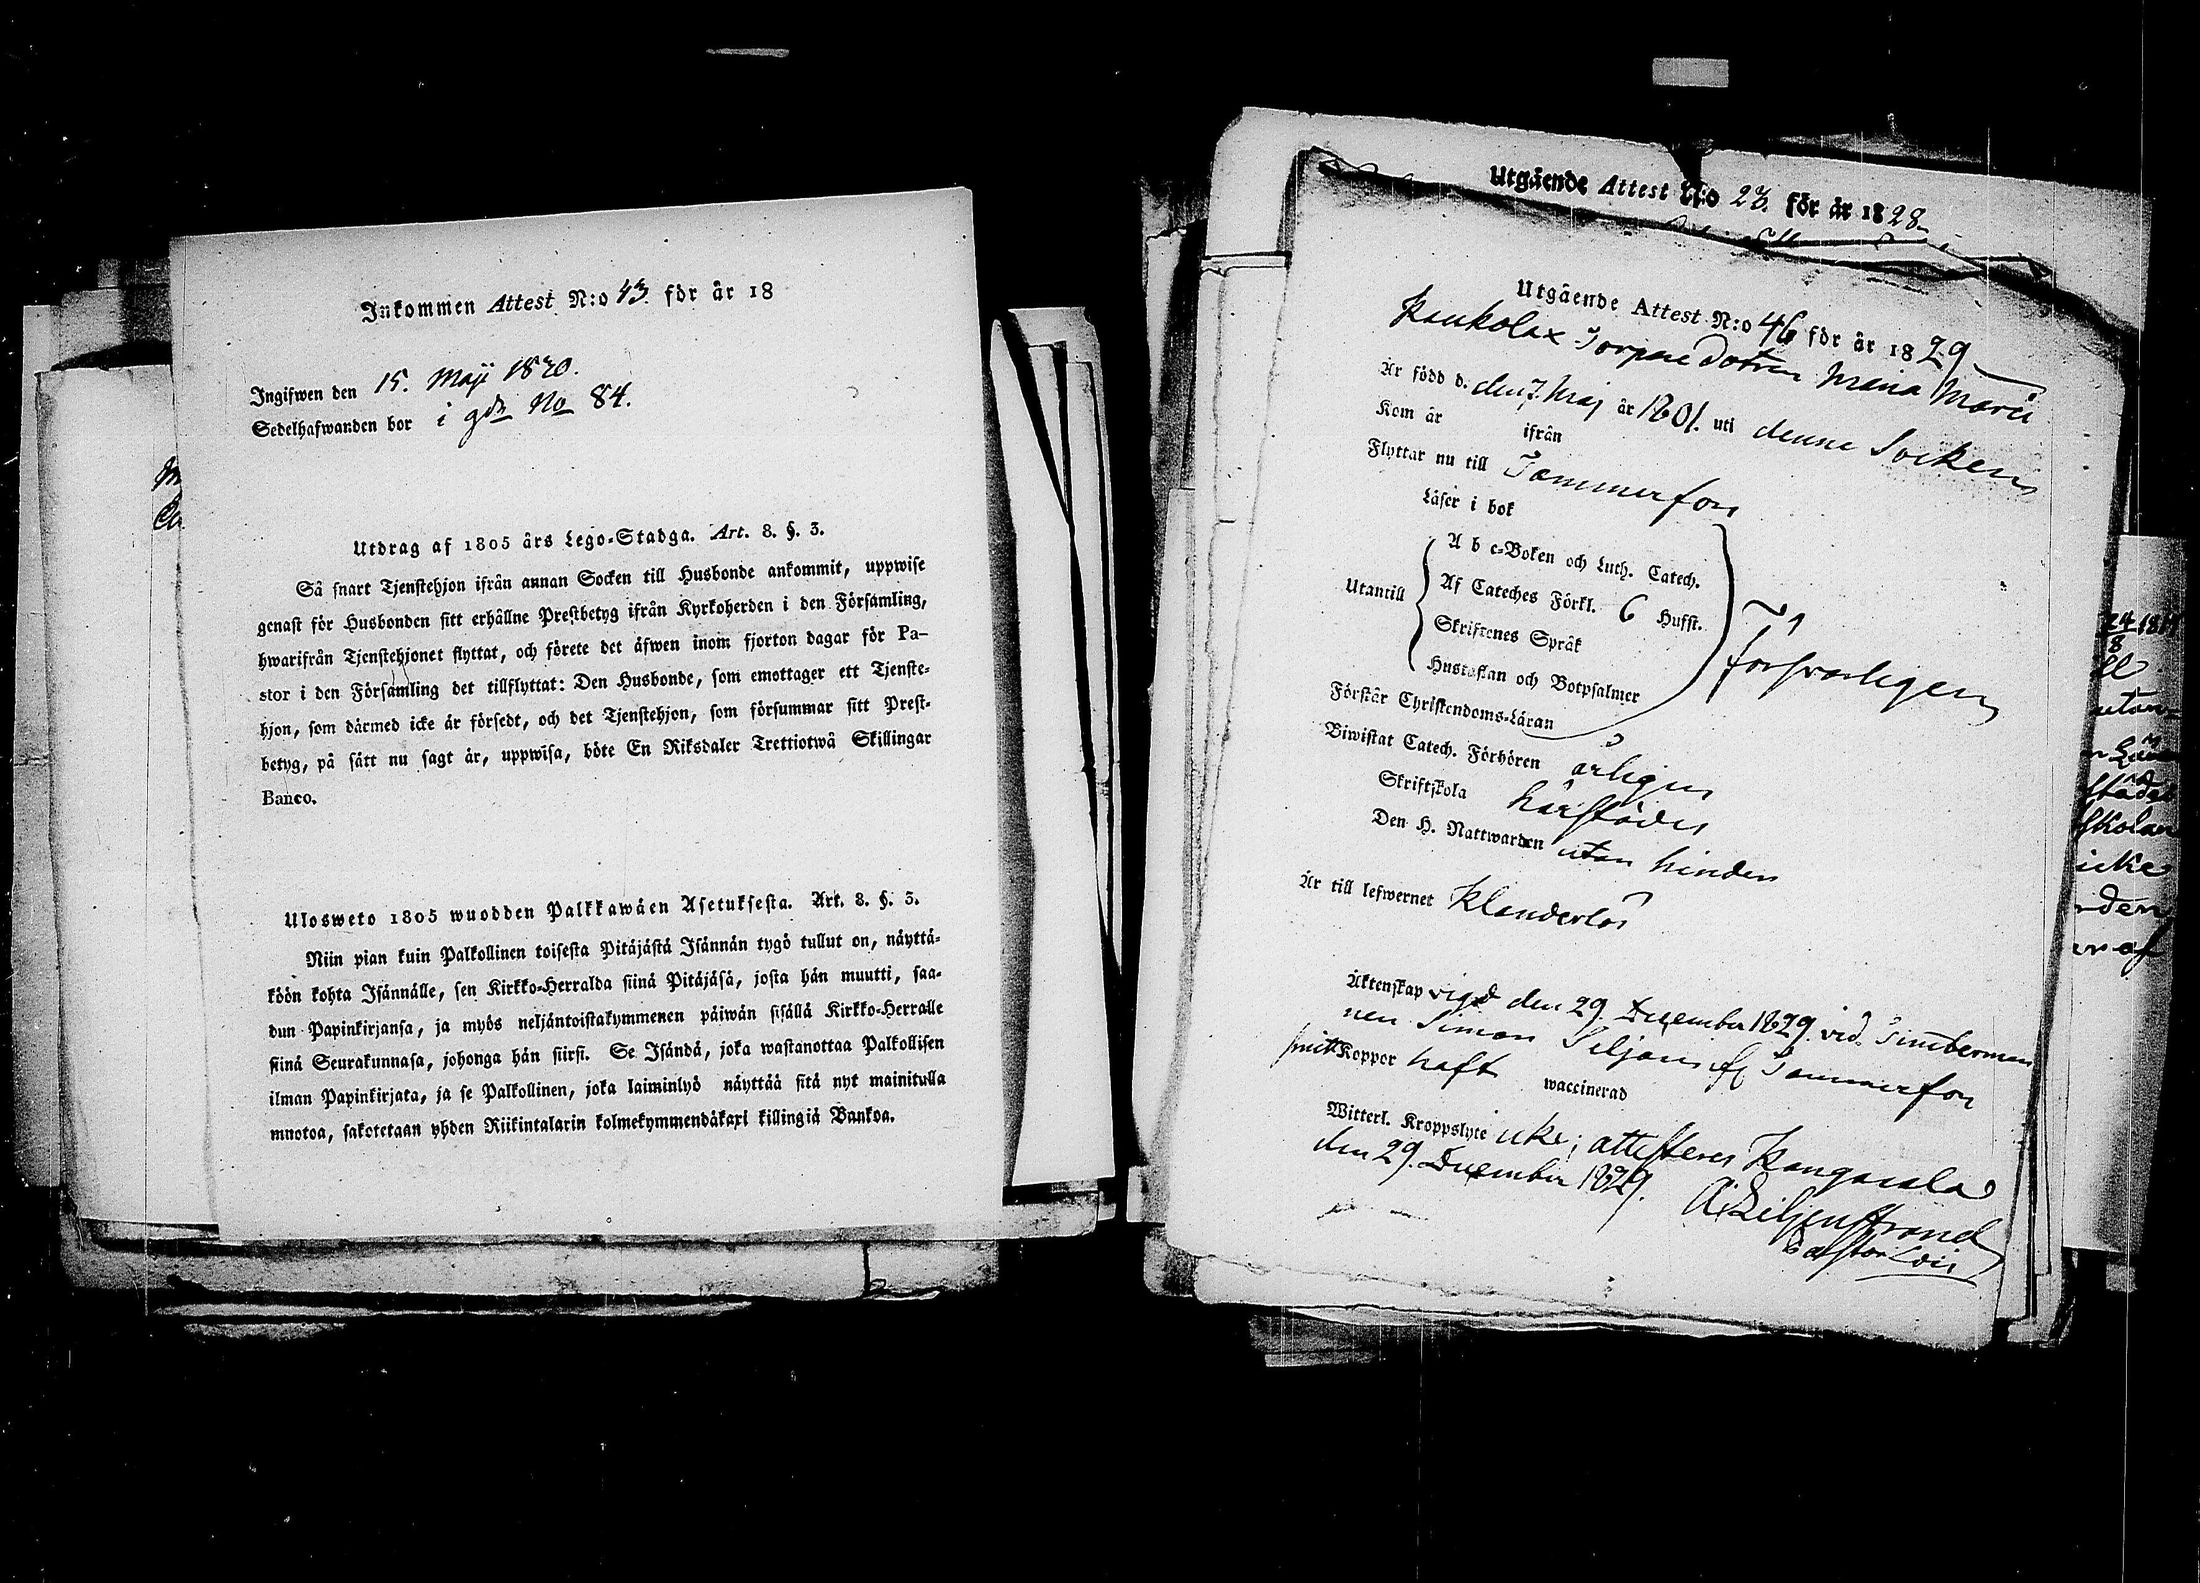 Inkommen Attest N:o 43. för år 18
Ingifwen den 15. Maji 1830.
Sedelhafwanden bor i gdn No 84.
Utdrag af 1805 års Lego-Stadga. Art. 8. §. 3.
Så snart Tjenstehjon ifrån annan Socken till Husbonde ankommit, uppwise
genast för Husbonden sitt erhållne Prestbetyg ifrån Kyrkoherden i den Församling,
hwarifrån Tjenstehjonet flyttat, och förete det äfwen inom fjorton dagar för Pa-
stor i den Församling det tillflyttat: Den Husbonde, som emottager ett Tjenste-
hjon, som därmed icke är försedt, och det Tjenstehjon, som försummar sitt Prest-
betyg, på sätt nu sagt är, uppwisa, böte En Riksdaler Trettiotwå Skillingar
Banco.
Ulosweto 1805 wuodden Palkkawäen Asetuksesta. Art. 8. §. 3.
Niin pian kuin Palkollinen toisesta Pitäjästä Isännän tygö tullut on, näyttä-
köön kohta Isännälle, sen Kirkko-Herralda siinä Pitäjäsä, josta hän muutti, saa-
dun Papinkirjansa, ja myös neljäntoistakymmenen päiwän sisällä Kirkko-Herralle
siinä Seurakunnasa, johonga hän siirsi. Se Isändä, joka wastanottaa Palkollisen
ilman Papinkirjata, ja se Palkollinen, joka laiminlyö näyttää sitä nyt mainitulla
muotoa, sakotetaan yhden Riikintalarin kolmekymmendäkaxi killingiä Bankoa.
Utgående Attest N:o 23. för år 1828
Utgående Attest N:o 46 för år 1829
Kaukolax Torpare Dotren Maria
Är född d. den 7. Maj år 1801. uti denne Socken
Kom år ifrån
Flyttar nu till Tammerfors
Läser i bok
A b c-Boken och Luth. Catech.
Utantill Af Cateches Förkl. 6 Hufst.
Skriftenes Språk
Hustaflan och Botpsalmer
försvarligen
Förstår Christendoms-Läran
Biwistat Catech. Förhören årligen
Skriftskola härstädes
Den H. Nattwarden utan hinder
Är till lefwernet Klanderlös
Äktenskap vigd den 29. December 1829. vid Timberman
nen Simon Seljan af Tammerfors
Koppor haft waccinerad
Witterl. Kroppslyte icke; attesteres Kangasala
den 29. December 1829.
A. Liljenstrand
24 1817
8
ll
utan-
städes
skolan
icke
rden
ur af